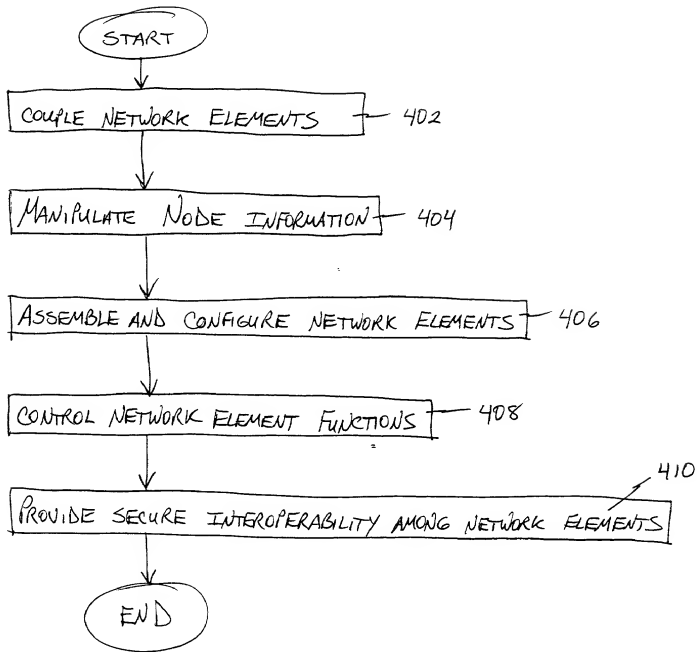 START
COUPLE NETWORK ELEMENTS
402
MANIPULATE NODE INFORMATION
404
ASSEMBLE AND CONFIGURE NETWORK ELEMENTS
406
CONTROL NETWORK ELEMENT FUNCTIONS
408
410
PROVIDE SECURE INTEROPERABILITY AMONG NETWORK ELEMENTS
END